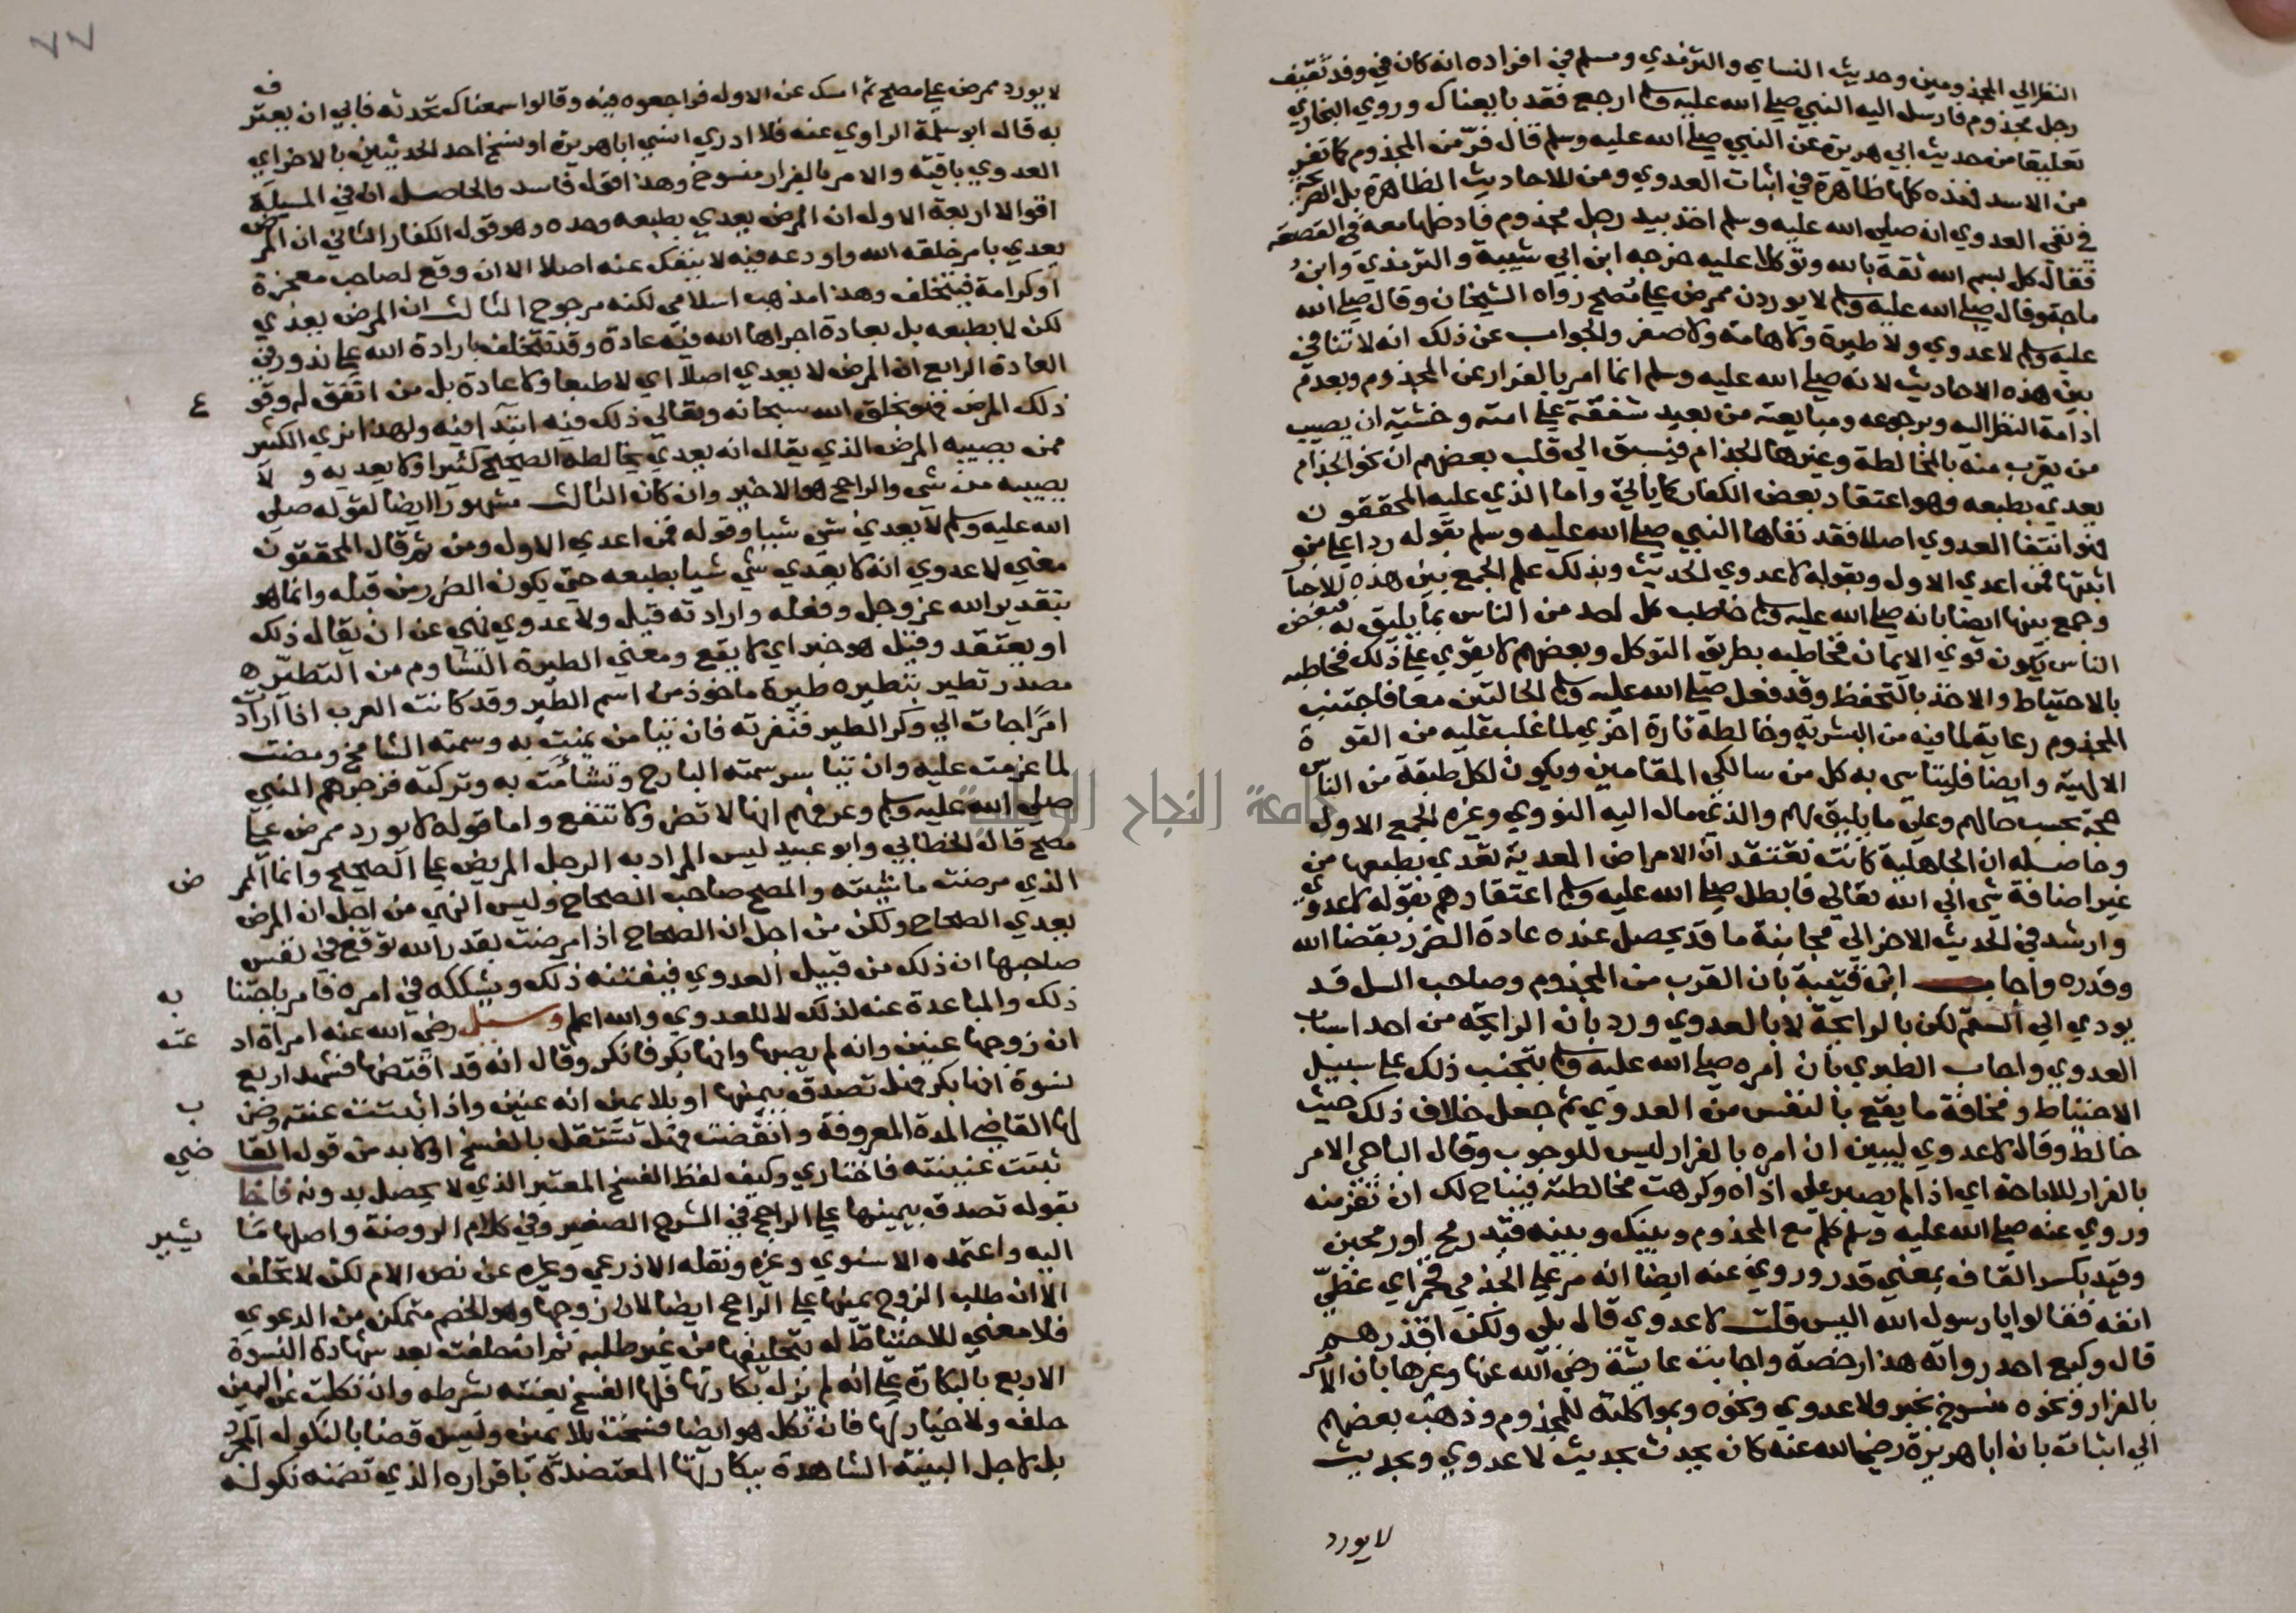 النظر الي المجذومين وحديث النساي والترمذي ومسلم في افراده انه كان في وفد ثقيف
رجل مجذوم فارسل اليه النبي صلي الله عليه وسلم ارجع فقد بايعناك وروي البخاري
تعليقا من حديث ابي هريرة عن النبي صلي الله عليه وسلم قال فرّ من المجذوم كما تفر
من الاسد فهذه كلها ظاهرة في اثبات العدوي ومن الاحاديث الظاهرة بل الصريحة
في نفي العدوي انه صلي الله عليه وسلم اخذ بيد رجل مجذوم فادخلها معه في القصعة
فقال كل بسم الله ثقة بالله وتوكلا عليه خرجه ابن ابي شيبة والترمذي وابن
ماجة وقال صلي الله عليه وسلم لا يوردن ممرض علي مصح رواه الشيخان وقال صلي الله
عليه وسلم لا عدوي ولا طيرة ولا هامة ولا صفر والجواب عن ذلك انه لا تنافي
بين هذه الاحاديث لانه صلي الله عليه وسلم انما امر بالفرار عن المجذوم وبعدم
ادامة النظر اليه وبرجوعه ومبايعته من بعيد شفقة علي امته وخشية ان يصيب
من يقرب منه بالمخالطة وغيرها الجذام فيسبق الي قلب بعضهم ان نحو الجذام
يعدي بطبعه وهو اعتقاد بعض الكفار كما ياتي واما الذي عليه المحققون
فهو انتفا العدوي اصلا فقد نفاها النبي صلي الله عليه وسلم بقوله ردا علي من
اثبتها فمن اعدي الاول وبقوله لا عدوي الحديث وبذلك علم الجمع بين هذه الاحاد
وجمع بينها ايضا بانه صلي الله عليه وسلم خاطب كل احد من الناس بما يليق به فبعض
الناس يكون قوي الايمان فخاطبه بطريق التوكل وبعضهم لا يقوي علي ذلك فخاطبه
بالاحتياط والاخذ بالتحفظ وقد فعل صلي الله عليه وسلم الحالتين معا فاجتنب
المجذوم رعاية لما فيه من البشرية وخالطه تارة اخري لما غلب عليه من القوة
الالهية وايضا فليتاسى به كل من سالكي المقامين ويكون لكل طبقة من الناس
حجة بحسب حالهم وعلي ما يليق بهم والذي مال اليه النووي وغيره الجمع الاول
وحاصله ان الجاهلية كانت تعتقد ان الامراض المعدية تعدي بطبعها من
غير اضافة شي الي الله تعالي فابطل صلي الله عليه وسلم اعتقادهم بقوله لا عدوي
وارشد في الحديث الاخر الي مجانبة ما قد يحصل عنده عادة الضرر بقضا الله
وقدره واجاب ابن قتيبة بان القرب من المجذوم وصاحب السل قد
يودي الي السقم لكن بالرايحة لا بالعدوي ورد بان الرايحة من احد اسباب
العدوي واجاب الطبري بان امره صلي الله عليه وسلم بتجنب ذلك علي سبيل
الاحتياط ومخافة ما يقع بالنفس من العدوي ثم جعل خلاف ذلك حيث
خالط وقال لا عدوي ليبين ان امره بالفرار ليس للوجوب وقال الباجي الامر
بالفرار للاباحة اي اذا لم يصبر علي اذاه وكرهت مخالطته فيباح لك ان تفر منه
وروي عنه صلي الله عليه وسلم كلم المجذوم وبينك وبينه قيد رمح او رمحين
وقيد بكسر القاف بمعني قدر وروي عنه ايضا انه مر علي الجذمي فخمر اي غطي
انفه فقالوا يا رسول الله اليس قلت لا عدوي قال بلي ولكن اقذرهم
قال وكيع احد رواته هذا رخصة واجابت عايشة رضي الله عنها وغيرها بان الامر
بالفرار ونحوه منسوخ بخبر ولا عدوي ونحوه وبمواكلته للمجذوم وذهب بعضهم
الي اثبات بان ابا هريرة رضي الله عنه كان يحدث بحديث لا عدوي وبحديث
لا يورد
٧٧
لا يورد ممرض علي مصح ثم امسك عن الاول فراجعوه فيه وقالوا سمعناك تحدثه فابي ان يعترف
به قال ابو سلمة الراوي عنه فلا ادري انسي ابا هريرة او نسخ احد الحديثين بالاخر اي
العدوي باقية والامر بالفرار منسوخ وهذا قول فاسد والحاصل ان في المسيلة
اقوالا اربعة الاول ان المرض يعدي بطبعه وحده وهو قول الكفار الثاني ان المرض
يعدي بامر خلقه الله واودعه فيه لا ينفك عنه اصلا الا ان وقع لصاحب معجزة
او كرامة فيتخلف وهذا مذهب اسلامي لكنه مرجوح الثالث ان المرض يعدي
لكن لا بطبعه بل بعادة اجراها الله فيه عادة وقد تتخلف بارادة الله علي ندور في
العادة الرابع ان المرض لا يعدي اصلا اي لا طبعا ولا عادة بل من اتفق له وقوع
ذلك المرض فهو بخلق الله سبحانه وتعالي ذلك فيه ابتدا فيه ولهذا نري الكثير
ممن يصيبه المرض الذي يقال انه يعدي يخالطه الصحيح كثيرا ولا يعديه ولا
يصيبه من شي والراجح هو الاخير وان كان الثالث مشهورا ايضا لقوله صلي
الله عليه وسلم لا يعدي شي شييا وقوله فمن اعدي الاول ومن ثم قال المحققون
معني لا عدوي انه لا يعدي شي شيا بطبعه حتي يكون الضرر من قبله وانما هو
بتقدير الله عز وجل وفعله وارادته قيل ولا عدوي نهي عن ان يقال ذلك
او يعتقد وقيل هو خبر اي لا يقع ومعني الطيرة التشاوم من التطيره
مصدر تطير يتطيره طيرة ماخوذ من اسم الطير وقد كانت العرب اذا ارادت
امرا جات الي وكر الطير فنفرته فان تيامن تيمنت به وسمته السانح ومضت
لما عزمت عليه وان تياسر سمته البارح وتشامت به وتركته فزجرهم النبي
صلي الله عليه وسلم وعرفهم انها لا تضر ولا تنفع واما قوله لا يورد ممرض علي
مصح قال الخطابي وابو عبيد ليس المراد به الرجل المريض علي الصحيح وانما الممرض
الذي مرضت ماشيته والمصح صاحب الصحاح وليس النهي من اجل ان المرض
يعدي الصحاح ولكن من اجل ان الصحاح اذا مرضت بقدر الله توقع في نفس
صاحبها ان ذلك من قبيل العدوي فيفتنه ذلك ويشككه في امره فامر باجتنابه
ذلك والمباعدة عنه لذلك لا للعدوي والله اعلم وسيل رضي الله عنه امراة ادعت
ان زوجها عنين وانه لم يصبها وانها بكر فانكر وقال انه قد افتضها فشهد اربع
نسوة انها بكر فهل تصدق بيمينها او بلا يمين انه عنين واذا ثبتت عنته وضرب
لها القاضي المدة المعروفة وانقضت فهل تستقل بالفسخ او لا بد من قول القاضي
ثبتت عنينته فاختاري وكيف لفظ الفسخ المعتبر الذي لا يحصل بدونه فاجاب
بقوله تصدق بيمينها علي الراجح في الشرح الصغير وفي كلام الروضة واصلها ما يشير
اليه واعتمده الاسنوي وغيره ونقله الاذرعي وغيره عن نص الام لكن لا تحلف
الا ان طلب الزوج يمينها علي الراجح ايضا لان زوجها وهو الخصم متمكن من الدعوي
فلا معني للاحتياط له بتحليفها من غير طلبه ثم ان حلفت بعد شهادة النسوة
الاربع بالبكارة علي انه لم يزل بكارتها فلها الفسخ بعنته بشرطه وان نكلت عن اليمين
حلف ولا خيار لها فان نكل هو ايضا فسخت بلا يمين وليس قضا بالنكول المجرد
بل لاجل البينة الشاهدة ببكارتها المعتضدة باقراره الذي تضمنه نكوله
جامعة النجاح الوطنية